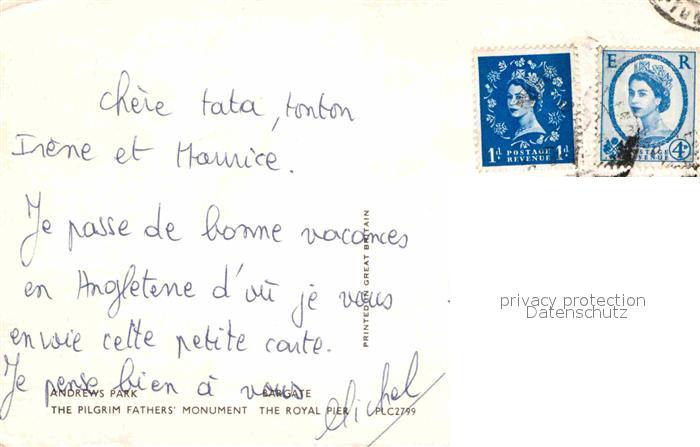 chère tata, tonton
Irène et Maurice.
Je passe de bonne vacances
en Angleterre d'où je vous
envoie cette petite carte.
Je pense bien à vous
Michel
ANDREWS PARK BARGATE
THE PILGRIM FATHERS' MONUMENT THE ROYAL PIER PLC2799
PRINTED IN GREAT BRITAIN
1d POSTAGE REVENUE 1d
E R
POSTAGE REVENUE 4d
privacy protection
Datenschutz